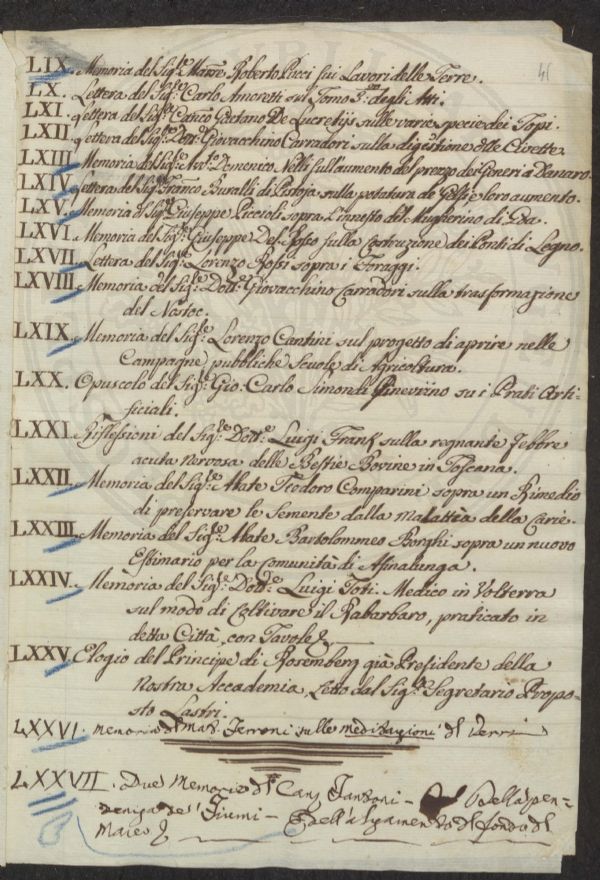 LIX. Memoria del Sig.re Mar.se Roberto Pucci sui Lavori delle Terre.
LX. Lettera del Sig.re Carlo Amoretti sul Tomo 3.º degli Atti.
LXI. Lettera del Sig.re Can.co Gaetano De Lucretijs sulle varie specie dei Topi.
LXII. Lettera del Sig.re Dott.e Giovacchino Carradori sulla digestione delle Civette.
LXIII. Memoria del Sig.re Avv.to Domenico Nelli sull'aumento del prezzo dei Generi a Danaro.
LXIV. Lettera del Sig.re Franco Buralli di sulla potatura de Gelsi e loro aumento.
LXV. Memoria del Sig.re Giuseppe Piccioli sopra l'innesto del Mugherino di Goa.
LXVI. Memoria del Sig.re Giuseppe Del Rosso sulla Costruzione dei Ponti di Legno.
LXVII. Lettera del Sig.re Lorenzo Rossi sopra i Foraggi.
LXVIII. Memoria del Sig.re Dott.e Giovacchino Carradori sulla trasformazione
del Nostoc.
LXIX. Memoria del Sig.re Lorenzo Cantini sul progetto di aprire nelle
Campagne pubbliche Scuole di Agricoltura.
LXX. Opuscolo del Sig.re Gio: Carlo Simondi Ginevrino su i Prati Arti-
ficiali.
LXXI. Riflessioni del Sig.re Dott.e Luigi Frank sulla regnante Febbre
acuta nervosa delle Bestie Bovine in Toscana.
LXXII. Memoria del Sig.re Abate Teodoro Comparini sopra un Rimedio
di preservare le Semente dalla Malattia della Carie.
LXXIII. Memoria del Sig.re Abate Bartolommeo Borghi sopra un nuovo
Estimario per la Comunità di Asinalunga.
LXXIV. Memoria del Sig.re Dott.e Luigi Toti Medico in Volterra
sul modo di Coltivare il Rabarbaro, praticato in
detta Città, con Tavole
LXXV. Elogio del Principe di Rosemberg già Presidente della
Nostra Accademia, Letto dal Sig.re Segretario Propo-
sto Lastri.
LXXVI. Memoria del Mat. Ferroni sulle meditazioni di Verri
LXXVII. Due Memorie del Can. Fantoni – Della pen-
denza de' Fiumi – E dell'alzamento del fondo del
Mare